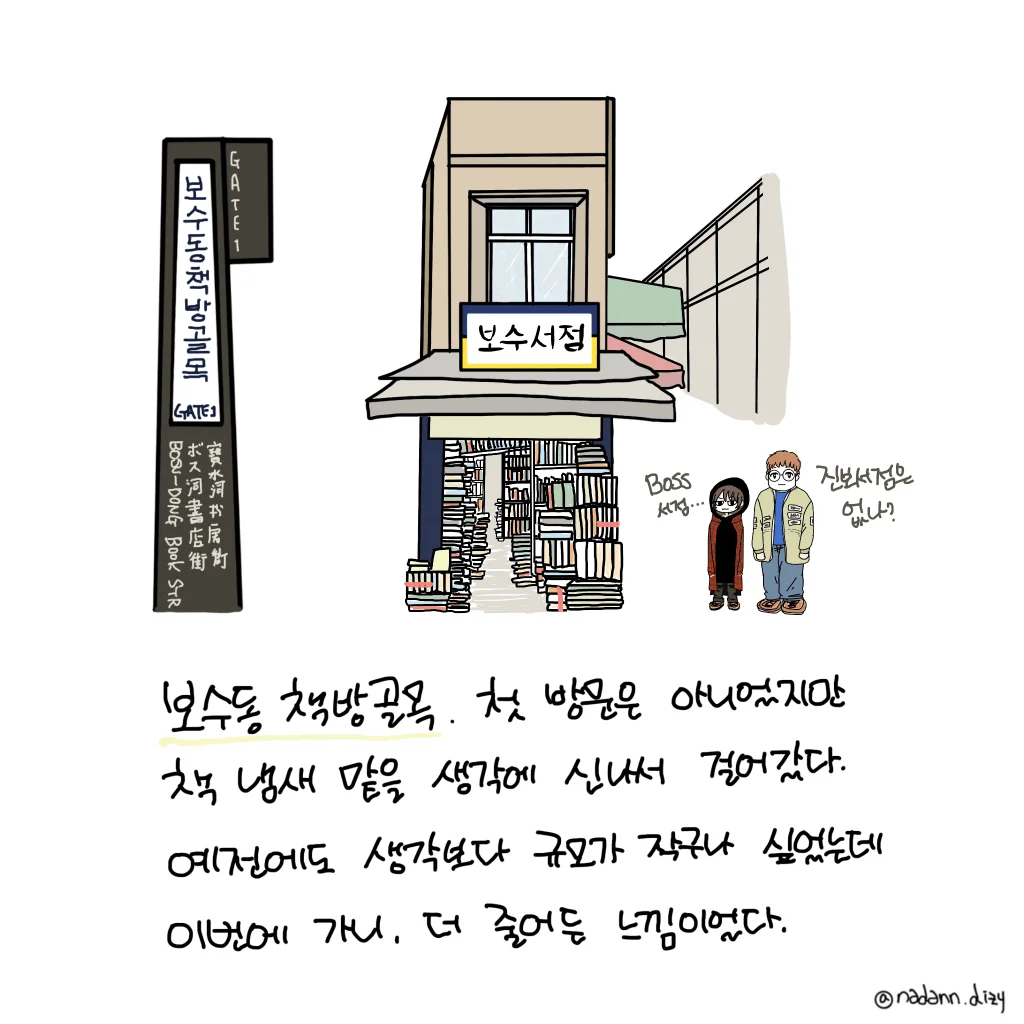 GATE1
보수동책방골목
GATE1
寶水洞书店街
ボス洞書店街
BOSU-DONG BOOK STR
보수서점
Boss
서점...
진보서점은
없나?
보수동 책방골목. 첫 방문은 아니었지만
책 냄새 맡을 생각에 신나서 걸어갔다.
예전에도 생각보다 규모가 작구나 싶었는데
이번에 가니, 더 줄어든 느낌이었다.
@nadann.dizy